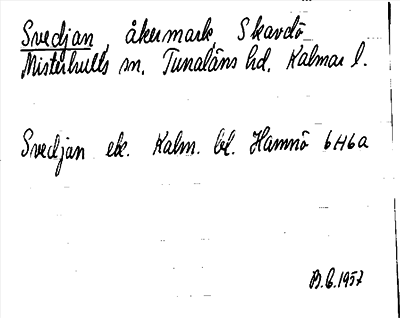 Svedjan, åkermark, Skavdö
Misterhults sn, Tunaläns hd, Kalmar l.
Svedjan ek. Kalm. bl. Hamnö 6H6a
B.E.1957